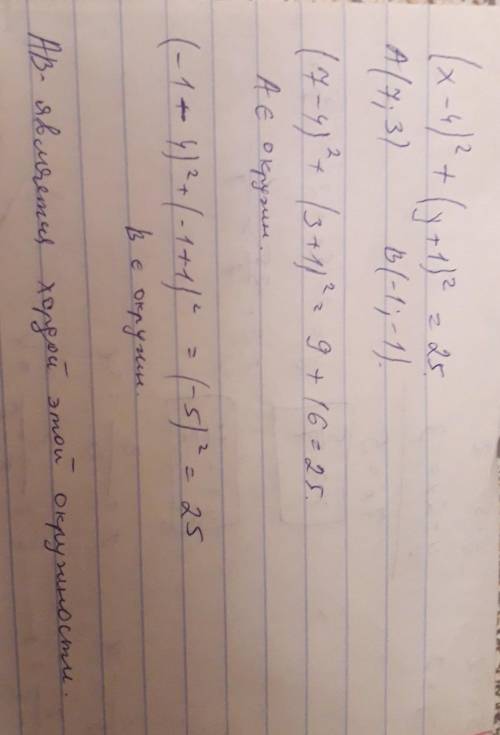 (x-4)² + (y+1)² = 25.
A(7; 3) B(-1; -1).
(7-4)² + (3+1)² = 9 + 16 = 25.
A ∈ окружн.
(-1-4)² + (-1+1)² = (-5)² = 25
B ∈ окружн.
AB- является хордой этой окружности.